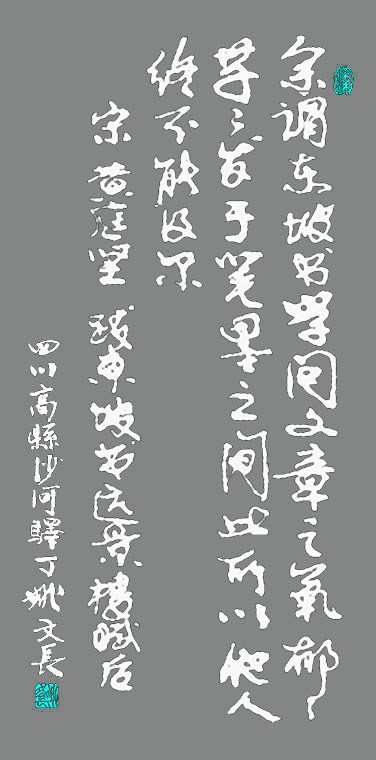 余谓东坡书学问文章之氣郁々
芊々发于笔墨之间此所以他人
终不能及尔
宋 黄庭坚 跋東坡书远景樓赋后
四川高縣沙河驛丁姚文長